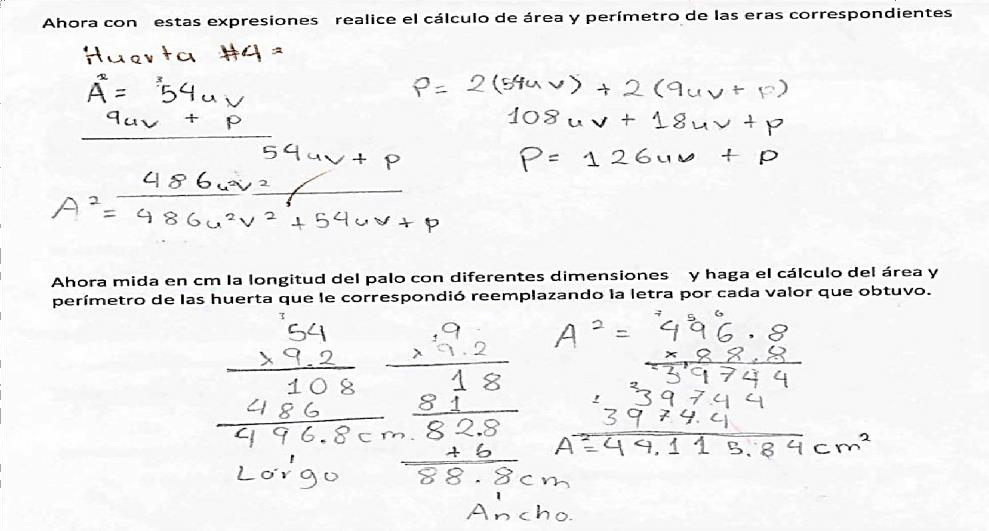 Ahora con estas expresiones realice el cálculo de área y perímetro de las eras correspondientes
Huerta #4=
A² = 54uv
9uv + p
54uv + p
486u²v²
A² = 486u²v² + 54uv + p
P= 2(54uv) + 2(9uv + p)
108uv + 18uv + p
P= 126uv + p
Ahora mida en cm la longitud del palo con diferentes dimensiones y haga el cálculo del área y
perímetro de las huerta que le correspondió reemplazando la letra por cada valor que obtuvo.
54
x 9.2
108
486
496.8cm.
Largo
9
x 9.2
18
81
82.8
+ 6
88.8cm
Ancho.
A² = 496.8
x 88.8
39744
39744
39744
A²=44.115.84cm²